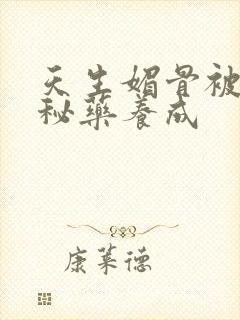 天生媚骨被
秘藥養成
康莱德